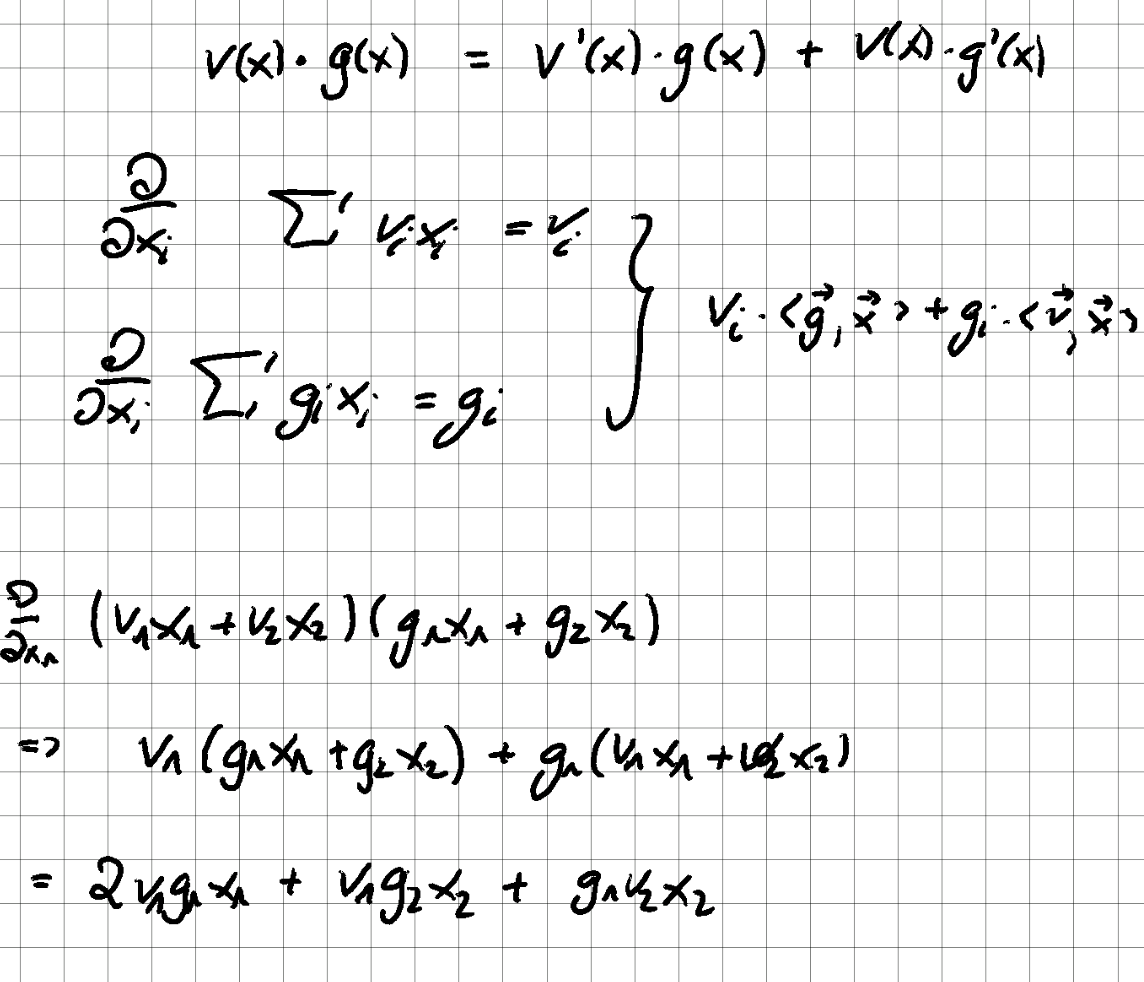 v(x) · g(x) = v'(x) · g(x) + v(x) · g'(x)
∂/∂xᵢ ∑ vᵢxᵢ = vᵢ
∂/∂xᵢ ∑ gᵢxᵢ = gᵢ } vᵢ · <g⃗, x⃗> + gᵢ · <v⃗, x⃗>
∂/∂x₁ (v₁x₁ + v₂x₂)(g₁x₁ + g₂x₂)
=> v₁(g₁x₁ + g₂x₂) + g₁(v₁x₁ + v₂x₂)
= 2v₁g₁x₁ + v₁g₂x₂ + g₁v₂x₂